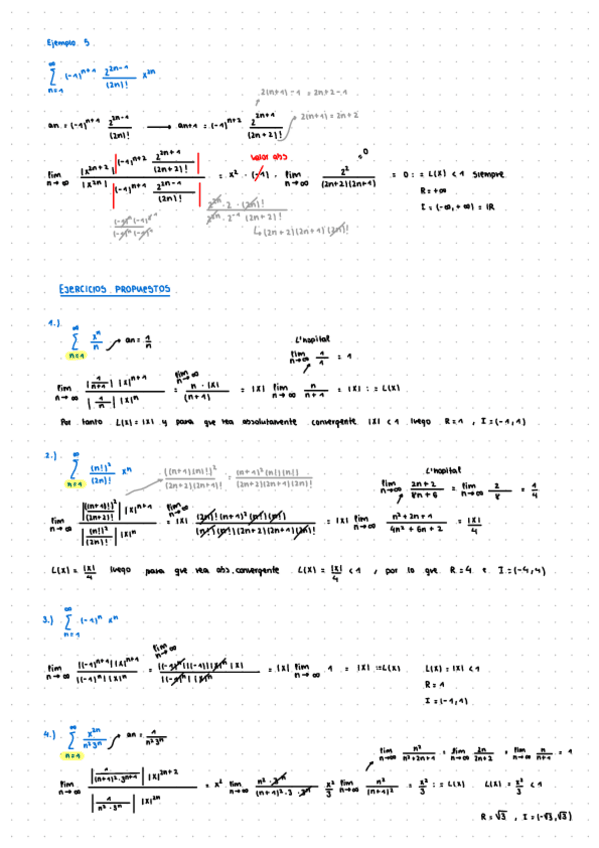 Ejemplo 5
∞ ∑ n=1 (-1)^{n+1} 2^{2n-1}/(2n)! x^{2n}
2(n+1)-1 = 2n+2-1
an = (-1)^{n+1} 2^{2n-1}/(2n)! ⟶ an+1 = (-1)^{n+2} 2^{2n+1}/(2n+2)! 2(n+1) = 2n+2
lim n→∞ |x^{2n+2}| |(-1)^{n+2} 2^{2n+1}/(2n+2)!| / |x^{2n}| |(-1)^{n+1} 2^{2n-1}/(2n)!| = x² · (-1) · valor abs lim n→∞ 2²/(2n+2)(2n+1) = 0 = 0 : = L(x) < 1 siempre
R = +∞
I = (-∞, +∞) = ℝ
2^{2n} · 2 · (2n)! / 2^{2n} · 2^{-1} (2n+2)!
↳ (2n+2)(2n+1)(2n)!
EJERCICIOS PROPUESTOS
1.) ∞ ∑ n=1 x^n/n → an = 1/n
L'hopital
lim n→∞ 1/1 = 1
lim n→∞ |1/(n+1)| |x|^{n+1} / |1/n| |x|^n = lim n→∞ n · |x| / (n+1) = |x| lim n→∞ n/(n+1) = |x| : = L(x)
Por tanto L(x) = |x| y para que sea absolutamente convergente |x| < 1 luego R = 1 , I = (-1,1)
2.) ∞ ∑ n=1 (n!)²/(2n)! x^n ((n+1)(n)!)²/(2n+2)(2n+1)(2n)! = (n+1)²(n)!(n)!/(2n+2)(2n+1)(2n)!
L'hopital
lim n→∞ 2n+2/8n+6 = lim n→∞ 2/8 = 1/4
lim n→∞ |((n+1)!)²/(2n+2)!| |x|^{n+1} / |(n!)²/(2n)!| |x|^n = lim n→∞ |x| (2n)!(n+1)²(n!)(n!)/(n!)(n!)(2n+2)(2n+1)(2n)! = |x| lim n→∞ n²+2n+1/4n²+6n+2 = |x|/4
L(x) = |x|/4 luego para que sea abs. convergente L(x) = |x|/4 < 1 , por lo que R = 4 e I = (-4,4)
3.) ∞ ∑ n=1 (-1)^n x^n
lim n→∞ |(-1)^{n+1}| |x|^{n+1} / |(-1)^n| |x|^n = lim n→∞ |(-1)^n| |(-1)| |x|^n |x| / |(-1)^n| |x|^n = |x| lim n→∞ 1 = |x| := L(x) L(x) = |x| < 1
R = 1
I = (-1,1)
4.) ∞ ∑ n=1 x^{2n}/n²3^n → an = 1/n²3^n
lim n→∞ n²/n²+2n+1 = lim n→∞ 2n/2n+2 = lim n→∞ n/n+1 = 1
lim n→∞ |1/(n+1)²·3^{n+1}| |x|^{2n+2} / |1/n²·3^n| |x|^{2n} = x² lim n→∞ n²·3^n/(n+1)²·3·3^n x²/3 lim n→∞ n²/(n+1)² = x²/3 : = L(x) L(x) = x²/3 < 1
R = √3 , I = (-√3,√3)